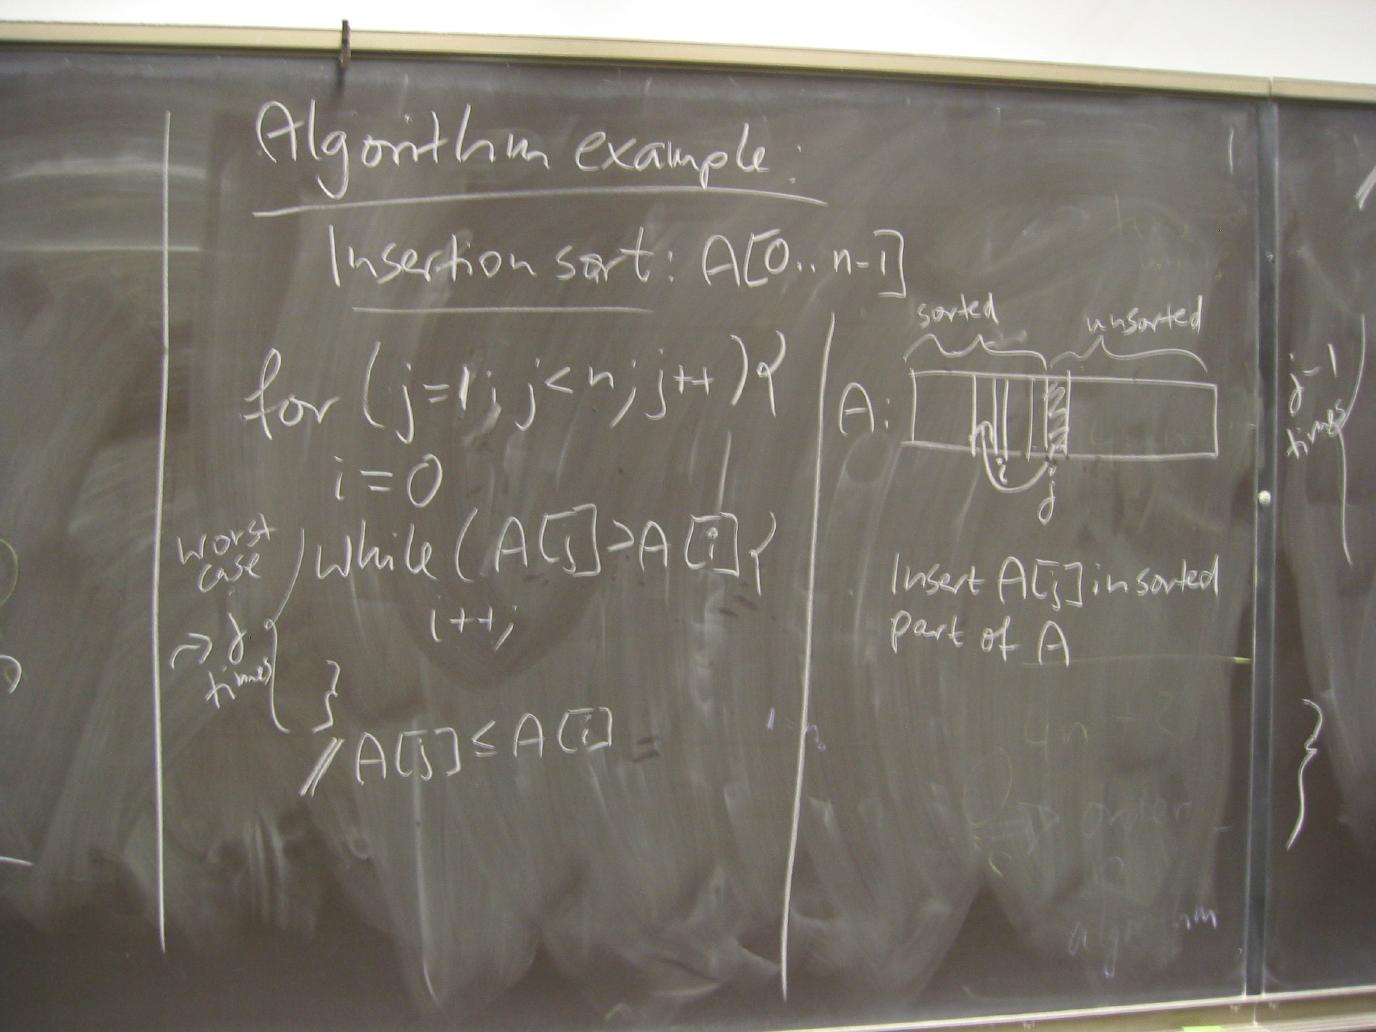 Algorithm example:
Insertion sort: A[0..n-1]
for (j=1; j<n; j++){
i=0
while (A[j]>A[i]{
i++;
}
// A[j] ≤ A[i]
worst
case
→ j
times
sorted
unsorted
A:
i
j
Insert A[j] in sorted
part of A
j-1
times
}
4n + 2
order
algorithm